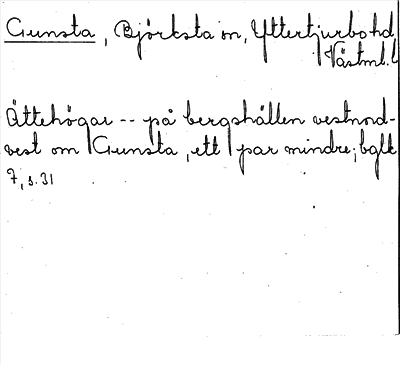 Gunsta, Björksta sn, Yttertjurbo hd
Västml. l
Ättehögar -- på bergshällen vestnord-
vest om Gunsta, ett par mindre; bglk
7, s. 31